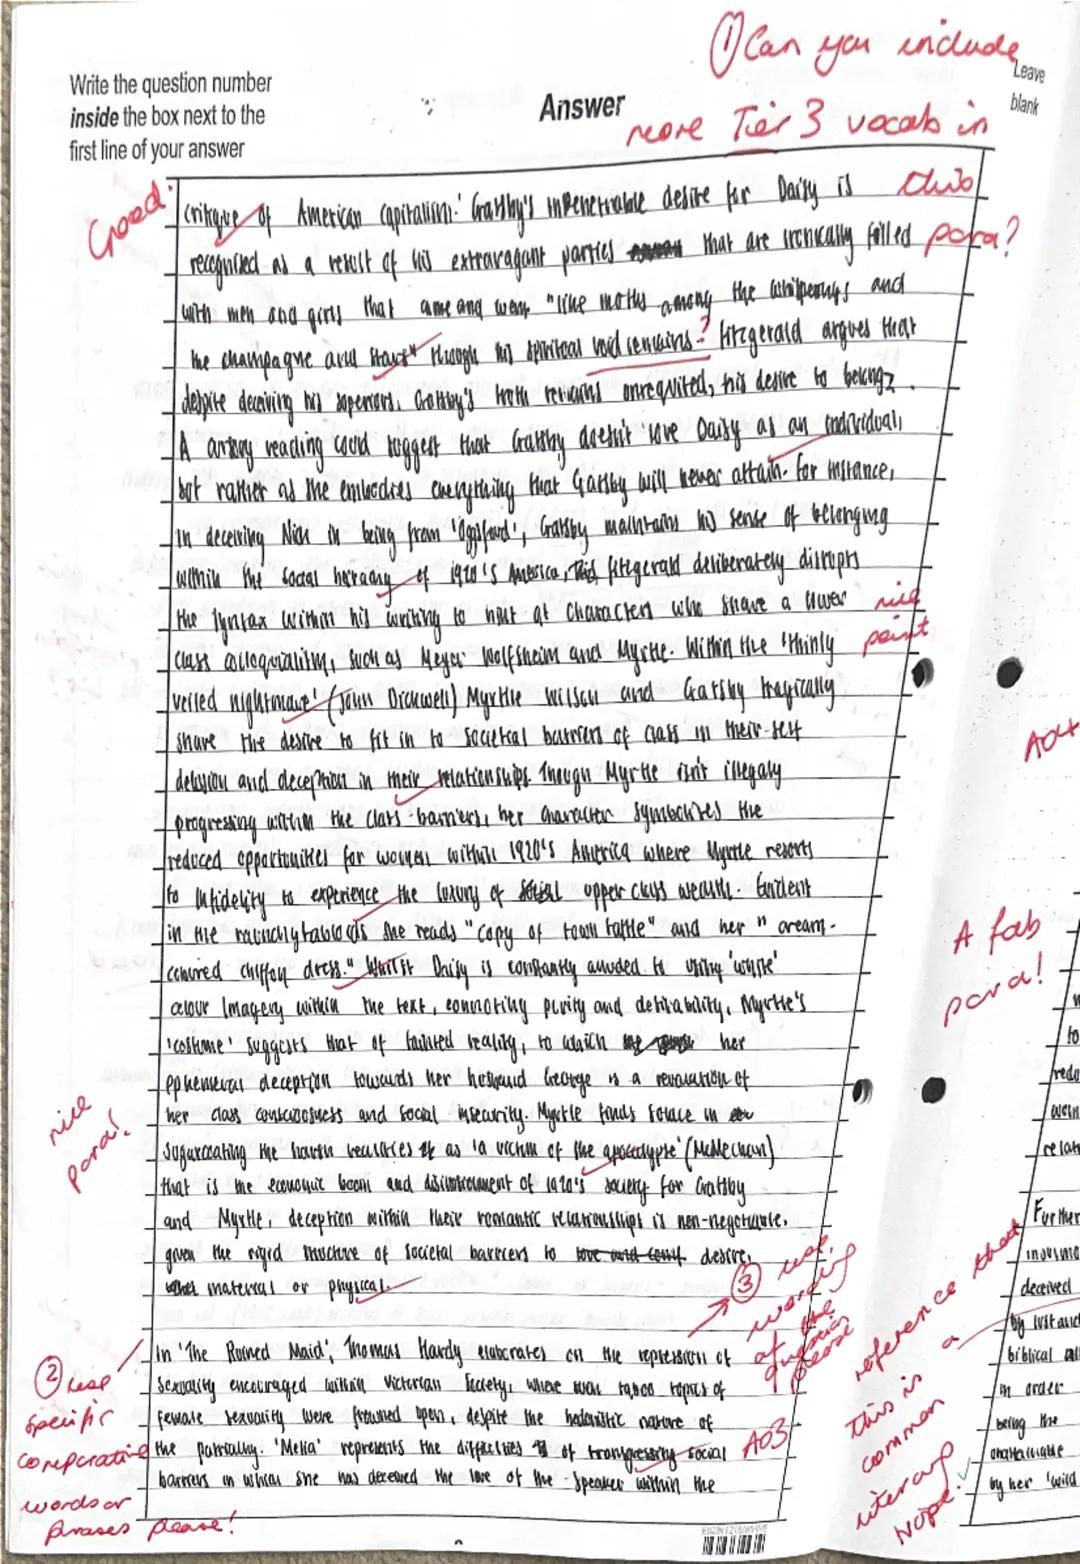 ① Can you include
more Tier 3 vocab in
this
para?
Leave
blank
Write the question number
inside the box next to the
first line of your answer
Answer
Good.
critique of American capitalism.' Gatsby's impenetrable desire for Daisy is
recognised as a result of his extravagant parties that are ironically filled
with men and girls that came and went "like moths among the whisperings and
the champagne and stars" though his spiritual void remains? Fitzgerald argues that
despite deceiving his superiors, Gatsby's truth remains unrequited, his desire to belong.
A reading could suggest that Gatsby doesn't love Daisy as an individual,
but rather as she embodies everything that Gatsby will never attain. For instance,
in deceiving Nick in being from 'Oggsford', Gatsby maintains his sense of belonging
within the social of 1920's America, Fitzgerald deliberately disrupts
the syntax within his writing to hint at characters who share a lower
class colloquiality, such as Meyer Wolfsheim and Myrtle. Within the 'thinly
veiled nightmare' (John Bicknell) Myrtle Wilson and Gatsby tragically
share the desire to fit in to societal barriers of class in their self
delusion and deception in their relationships. Though Myrtle isn't illegaly
progressing within the class-barriers, her character symbolises the
reduced opportunities for women within 1920's America where Myrtle resorts
to infidelity to experience the luxury of social upper class wealth. Evident
in the raunchy tabloids she reads "copy of town tattle" and her "cream-
coloured chiffon dress." Whilst Daisy is constantly alluded to using 'white'
colour imagery within the text, connoting purity and desirability, Myrtle's
'costume' suggests that of tainted reality, to which her
ephemeral deception towards her husband George is a revaluation of
her class consciousness and social insecurity. Myrtle finds solace in
sugarcoating the harsh realities as 'a victim of the apocalypse' (McMechan)
that is the economic boom and disintrenment of 1920's society for Gatsby
and Myrtle, deception within their romantic relationships is non-negotiable,
given the rigid structure of societal barriers to love and desire,
material or physical.
nice
point
nice
para!
③ use
wording
of the
question
please
② use
specific
comparative
words or
phrases please!
In 'The Ruined Maid', Thomas Hardy elaborates on the repression of
sexuality encouraged within Victorian Society, where taboo topics of
female sexuality were frowned upon, despite the hedonistic nature of
the patriarchy. 'Melia' represents the difficulties of transgressing social
barriers in which she has deceived the love of the speaker within the
AO3
AO4
A fab
para!
reference that
this is
a
common
Nope!
to
redu
well
relat
Further
deceived
by lust and
biblical all
in order
being the
unattainable
by her 'wild